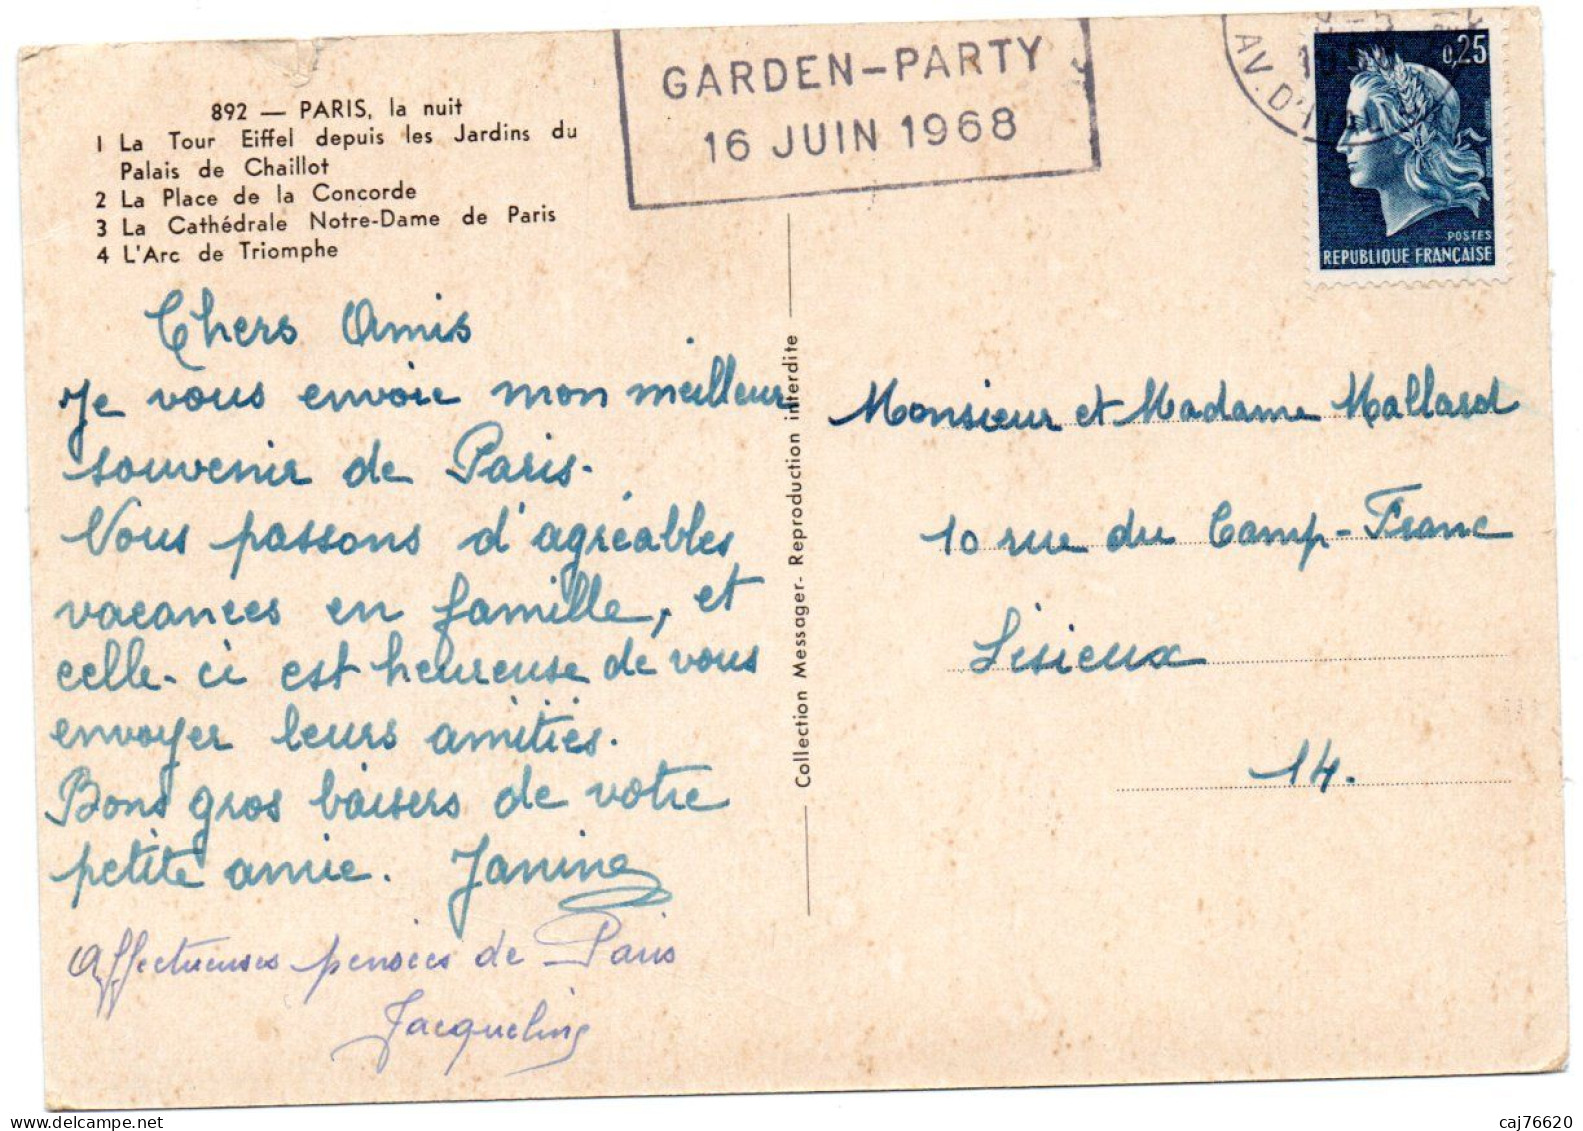 892 — PARIS, la nuit
1 La Tour Eiffel depuis les Jardins du
Palais de Chaillot
2 La Place de la Concorde
3 La Cathédrale Notre-Dame de Paris
4 L'Arc de Triomphe
GARDEN-PARTY
16 JUIN 1968
AV. D'
0,25
POSTES
REPUBLIQUE FRANÇAISE
Chers Amis
Je vous envoie mon meilleur
souvenir de Paris.
Nous passons d'agréables
vacances en famille, et
celle-ci est heureuse de vous
envoyer leurs amitiés.
Bons gros baisers de votre
petite amie. Janine
Affectueuses pensées de Paris
Jacqueline
Collection Messager - Reproduction interdite
Monsieur et Madame Mallard
10 rue du Camp-Franc
Lisieux
14.
caj76620